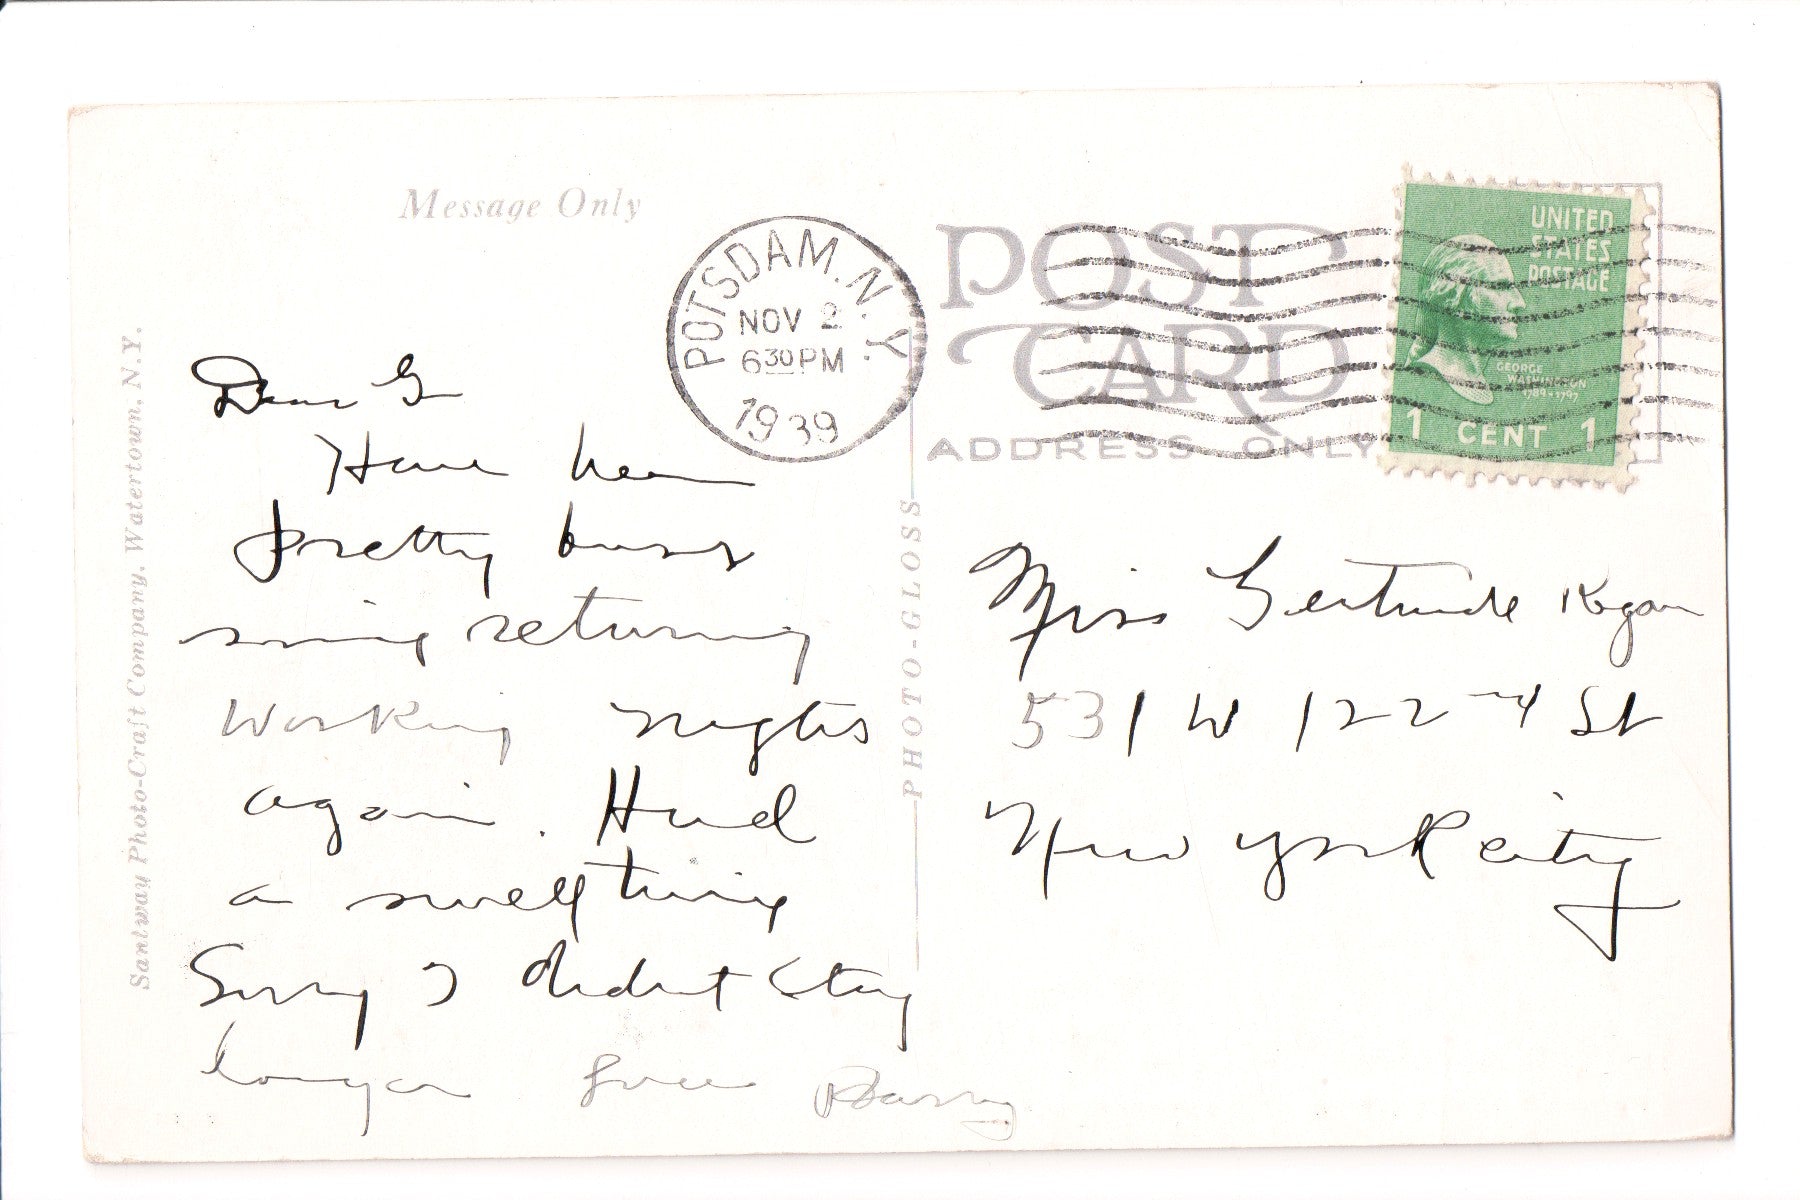 Message Only
POTSDAM. N.Y.
NOV 2
6 30 PM
1939
POST
CARD
ADDRESS ONLY
UNITED
STATES
POSTAGE
GEORGE
WASHINGTON
1789-1797
1 CENT 1
Santway Photo-Craft Company, Watertown, N.Y.
PHOTO-GLOSS
Dear G
Have been
pretty busy
since returning
Working nights
again. Had
a swell time
Sorry I didnt stay
longer Love Barry
Miss Gertrude Kogan
531 W 122nd St
New York City